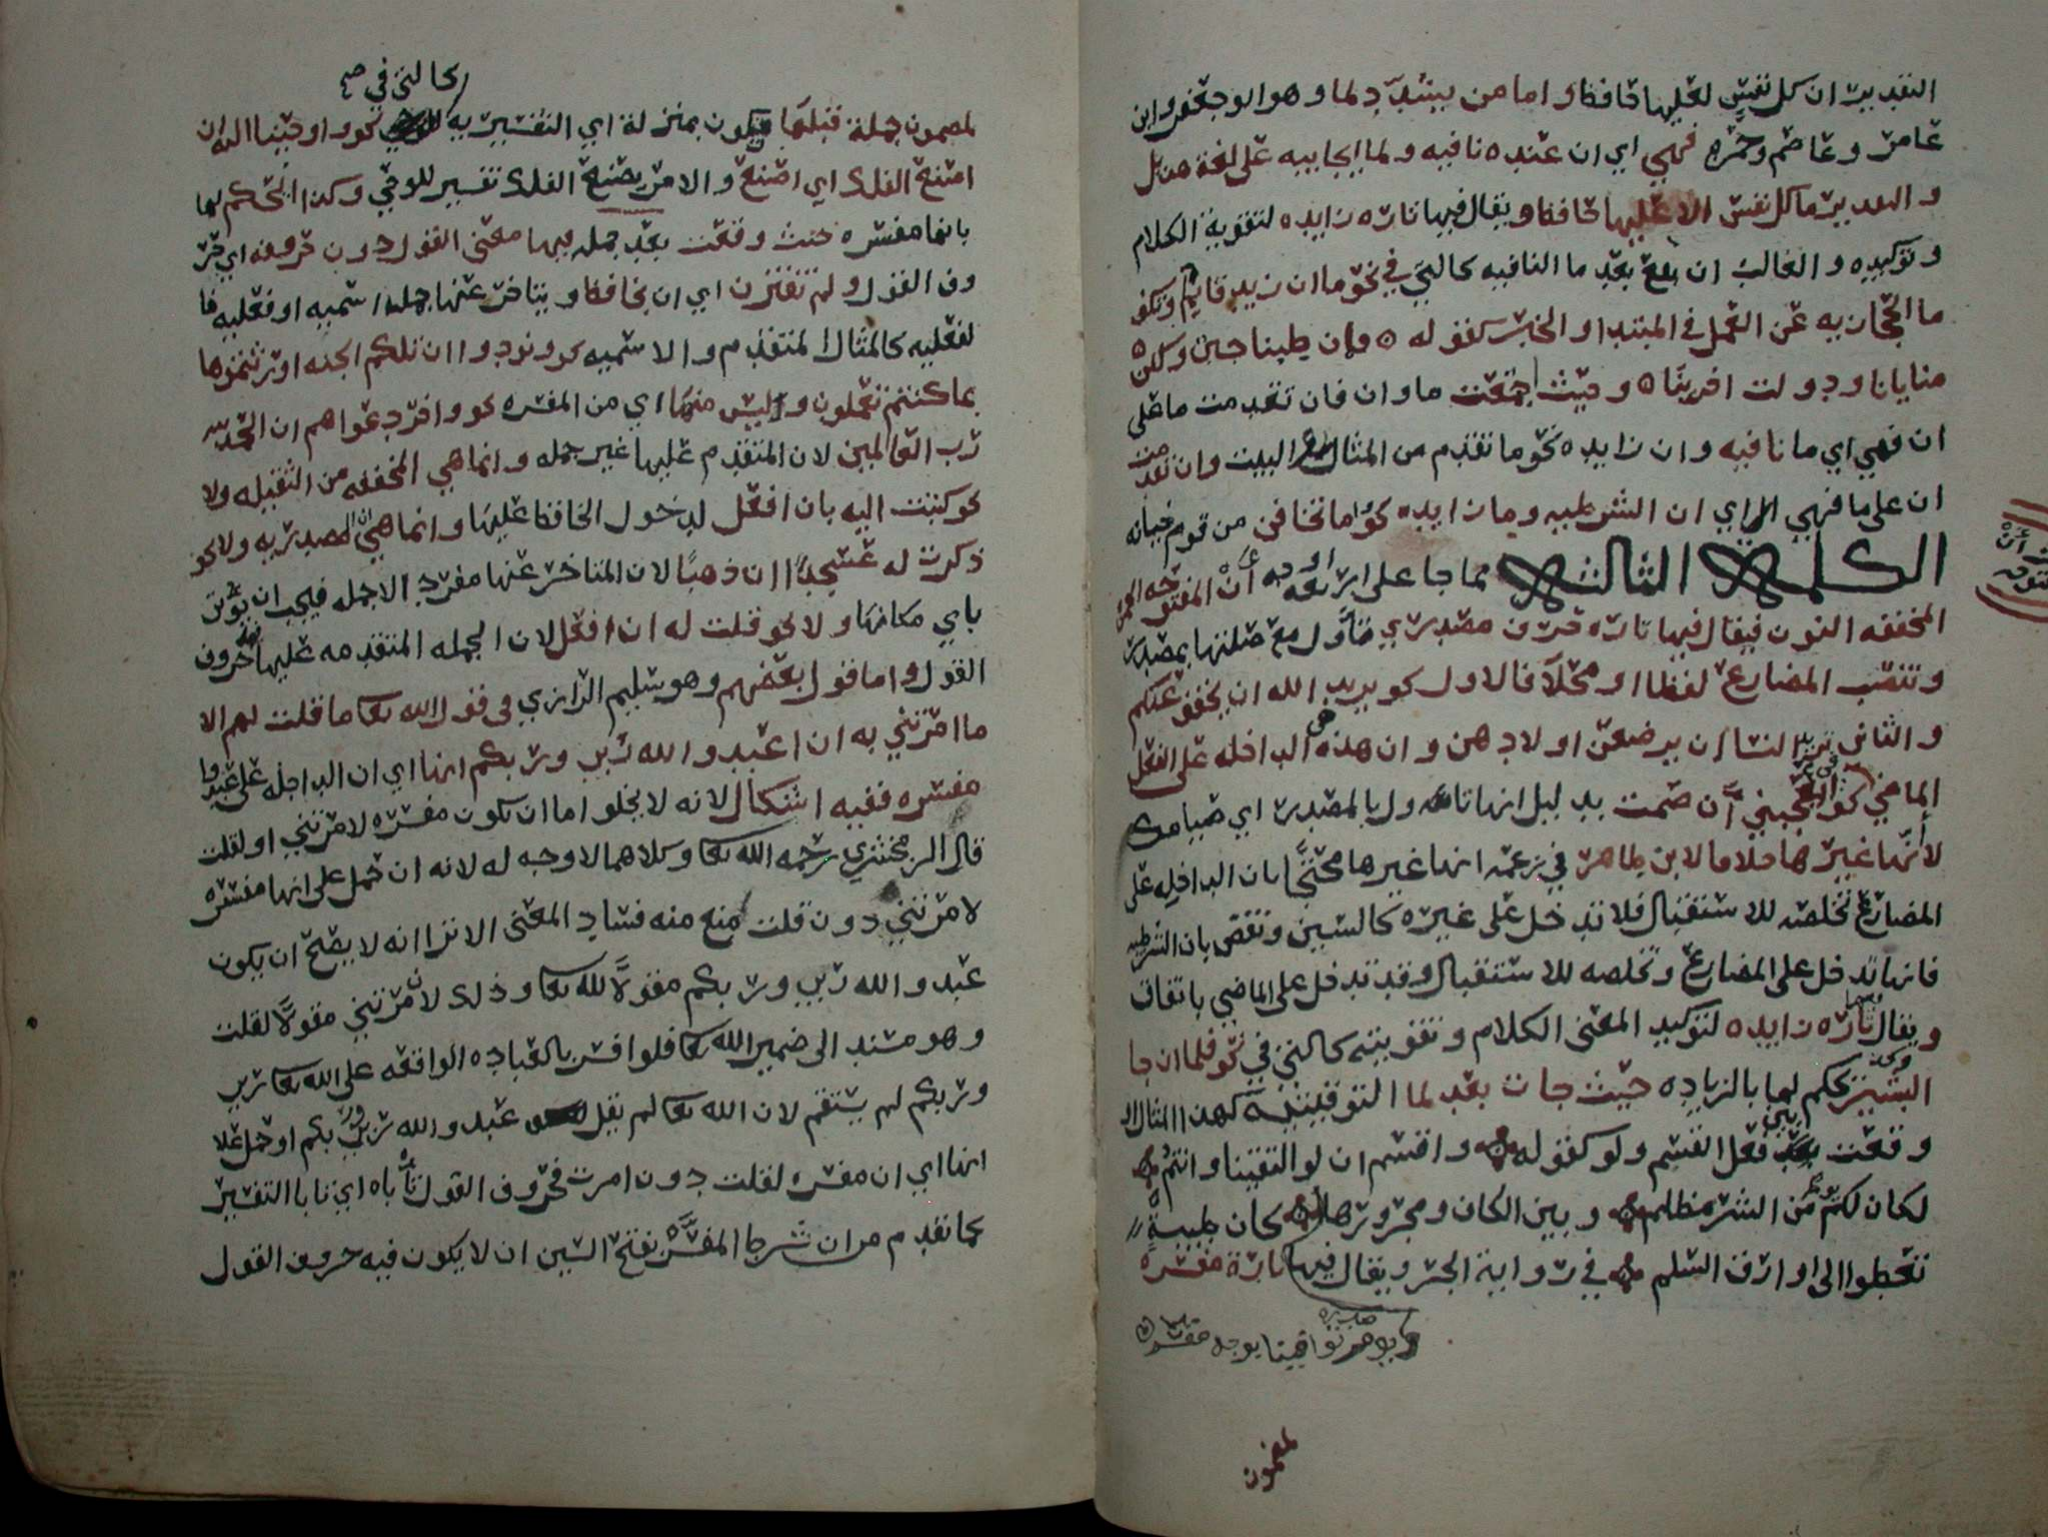 التقدير ان كل نفس لعليها حافظ واما من يشدد لما وهو ابو جعفر وابن
عامر وعاصم وحمزه فهي اي ان عنده نافيه ولما ايجابيه على لغة هذيل
والتقدير ما كل نفس الا عليها حافظ ويقال فيها تاره زايده لتقوية الكلام
وتوكيده والغالب ان تقع بعد ما النافيه كالتي في نحو ما ان زيد قايم وتكف
ما الحجازيه عن العمل في المبتدا والخبر كقوله وما ان طبنا جبن ولكن
منايانا ودولت اخرينا وحيث اجتمعت ما وان فان تقدمت ما على
ان فهي اي ما نافيه وان زايده نحو ما تقدم من المثال والبيت وان تقدمت
ان على ما فهي اي ان الشرطيه وما زايده نحو واما تخافن من قوم خيانه
الكلمه الثالثه مما جا على اربعه اوجه أنْ المفتوحه الهمزه
المخففه النون فيقال فيها تاره حرف مصدري تأوّل مع صلتها بمصدر
وتنصب المضارع لفظا او محلاً فالاول نحو يريد الله ان يخفف عنكم
والثاني نحو يريد النسا ان يرضعن اولادهن وان هذه هي الداخله على الفعل
الماضي في نحو اعجبني أن صمت بدليل انها تاول بالمصدر اي صيامك
لا أنّها غيرها خلافا لابن طاهر في زعمه انها غيرها محتجًّا بان الداخله على
المضارع تخلصه للاستقبال فلا تدخل على غيره كالسين ونقض بان الشرطيه
فانها تدخل على المضارع وتخلصه للاستقبال وقد تدخل على الماضي باتفاق
ويقال فيها تاره زايده لتوكيد المعنى الكلام وتقويته كالتي في نحو فلما ان جا
البشير وكذا تحكم لها بالزياده حيث جات بعد لما التوقيتيه كهذا المثال او
وقعت بين فعل القسم ولو كقوله واقسم ان لو التقينا وانتم
لكان لكم يوم من الشر مظلم وبين الكاف ومجرورها كأن ظبيةٍ
تعطوا الى وارق السلم في رواية الجر ويقال فيها تارة مفسره
ويوما توافينا بوجه مقسم
لمضمون
لمضمون جملة قبلها فيكون بمنزلة اي التفسيريه كالتي في نحو واوحينا اليه ان
اصنع الفلك اي اصنع والامر بصنع الفلك تفسير للوحي وكذا تحكم لها
بانها مفسره حيث وقعت بعد جمله فيها معنى القول دون حروفه اي حر
وف القول ولم تقترن اي ان بخافض ويتاخر عنها جمله اسميه او فعليه فا
لفعليه كالمثال المتقدم والاسميه نحو ونودوا ان تلكم الجنه اورثتموها
بما كنتم تعملون وليس منها اي من المفسره نحو واخر دعواهم ان الحمد لله
رب العالمين لان المتقدم عليها غير جمله وانما هي المخففه من الثقيله ولا
نحو كتبت اليه بان افعل لدخول الخافض عليها وانما هي ان المصدريه ولا نحو
ذكرت له عسجدًا ان ذهبًا لان المتاخر عنها مفرد لا جمله فيجب ان يؤتى
باي مكانها ولا نحو قلت له ان افعل لان الجمله المتقدمه عليها فيها حروف
القول واما قول بعضهم وهو سليم الرازي في قول الله تعا ما قلت لهم الا
ما امرتني به ان اعبدوا الله ربي وربكم انها اي ان الداخله على اعبدوا
مفسره ففيه اشكال لانه لا يخلوا اما ان تكون مفسره لامرتني او لقلت
قال الزمخشري رحمه الله تعا وكلاهما لا وجه له لانه ان حمل على انها مفسره
لامرتني دون قلت منع منه فساد المعنى الا ترا انه لا يصح ان يكون
عبدوا الله ربي وربكم مقولاً لله تعا وذلك لان امرتني مقولاً لقلت
وهو مسند الى ضمير الله تعا فلو افسر بالعباده الواقعه على الله تعا ربي
وربكم لم يستقم لان الله تعا لم يقل عبدوا الله ربي وربكم او حمل على
انها اي ان مفسره لقلت دون امرت فحروف القول تأباه اي تابا التفسير
كما تقدم من ان شرط المفسَّره بفتح السين ان لا يكون فيه حروف القول